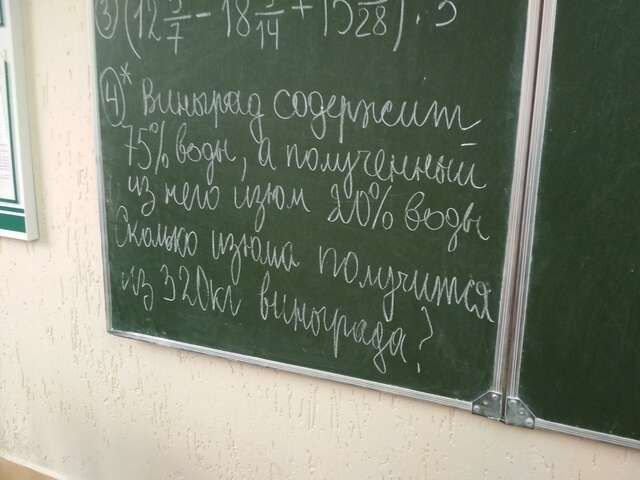 3) (12 5/7 - 18 3/14 + 15 /28) : 5
4)* Виноград содержит
75% воды, а полученный
из него изюм 20% воды
Сколько изюма получится
из 320кг винограда?